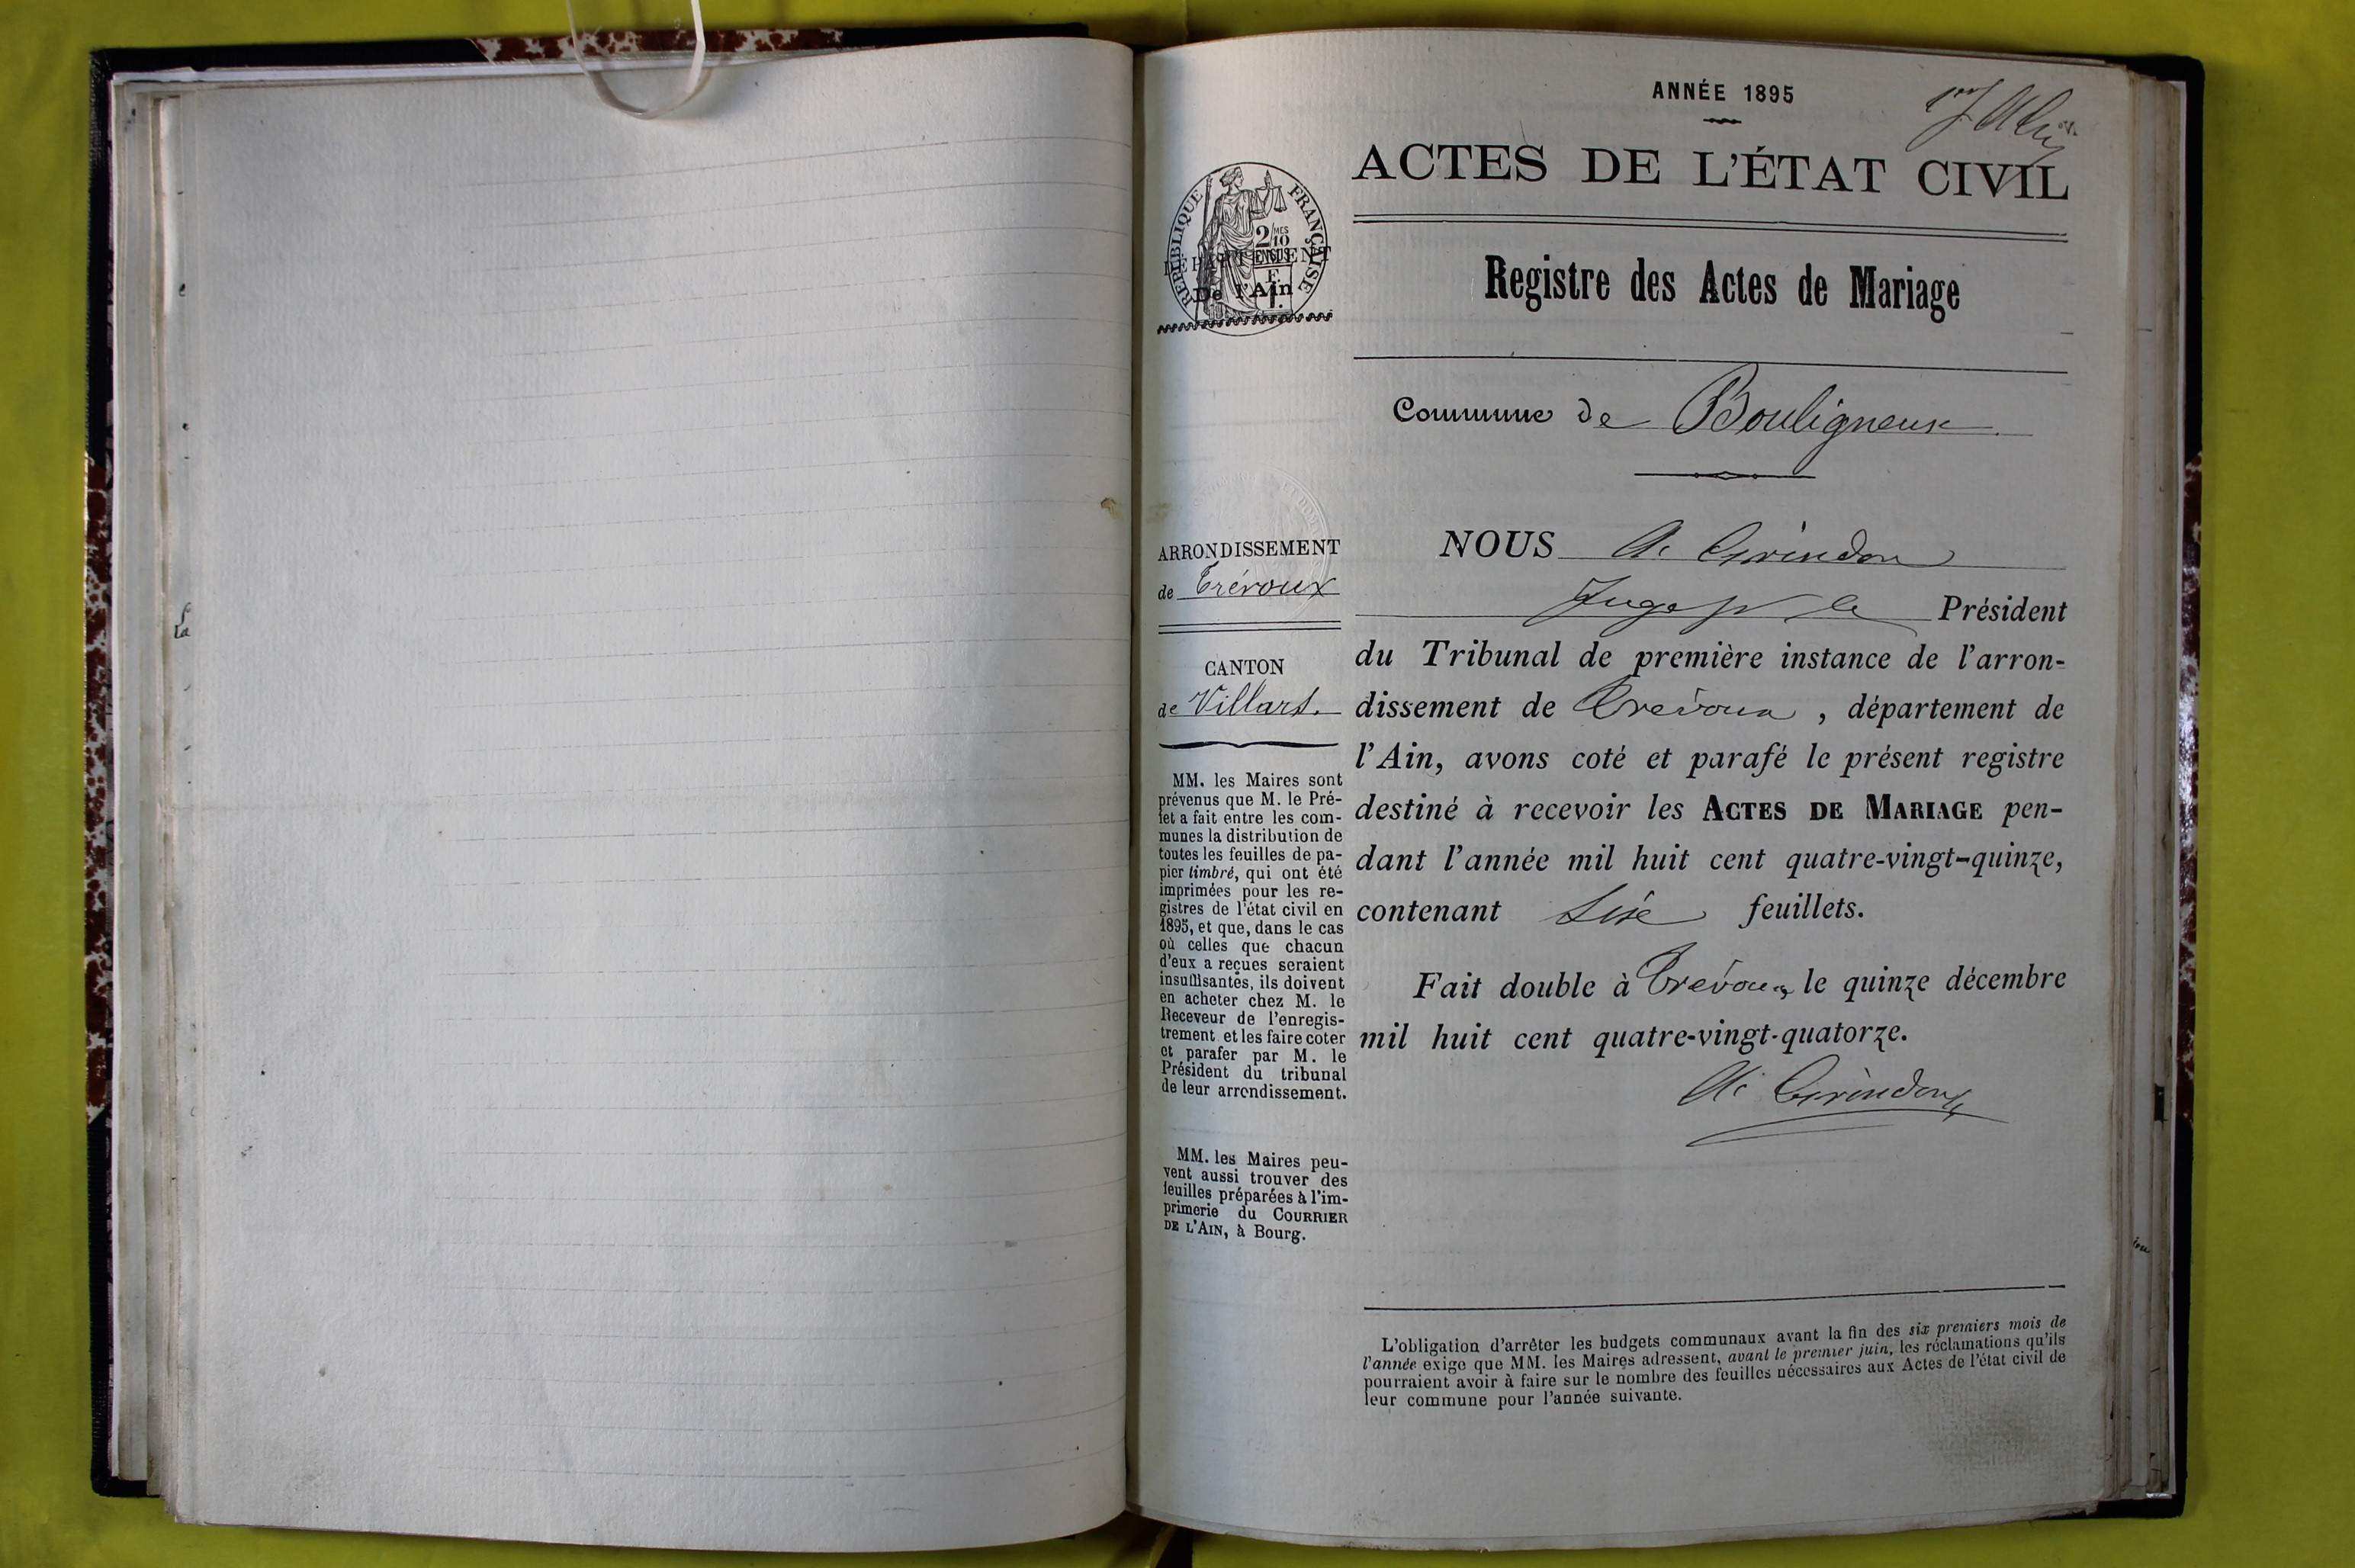 ANNÉE 1895
ACTES DE L'ÉTAT CIVIL
RÉPUBLIQUE FRANÇAISE
2/10 MES
EN SUS
DÉPARTEMENT
De l'Ain
Registre des Actes de Mariage
Commune de Bouligneux
ARRONDISSEMENT
de Trévoux
CANTON
de Villars.
MM. les Maires sont
prévenus que M. le Pré-
fet a fait entre les com-
munes la distribution de
toutes les feuilles de pa-
pier timbré, qui ont été
imprimées pour les re-
gistres de l'état civil en
1895, et que, dans le cas
où celles que chacun
d'eux a reçues seraient
insuffisantes, ils doivent
en acheter chez M. le
Receveur de l'enregis-
trement et les faire coter
et parafer par M. le
Président du tribunal
de leur arrondissement.
MM. les Maires peu-
vent aussi trouver des
feuilles préparées à l'im-
primerie du COURRIER
DE L'AIN, à Bourg.
NOUS A. Girindon
Juge pr le Président
du Tribunal de première instance de l'arron-
dissement de Trévoux, département de
l'Ain, avons coté et parafé le présent registre
destiné à recevoir les ACTES DE MARIAGE pen-
dant l'année mil huit cent quatre-vingt-quinze,
contenant Six feuillets.
Fait double à Trévoux, le quinze décembre
mil huit cent quatre-vingt-quatorze.
A. Girindon
L'obligation d'arrêter les budgets communaux avant la fin des six premiers mois de
l'année exige que MM. les Maires adressent, avant le premier juin, les réclamations qu'ils
pourraient avoir à faire sur le nombre des feuilles nécessaires aux Actes de l'état civil de
leur commune pour l'année suivante.